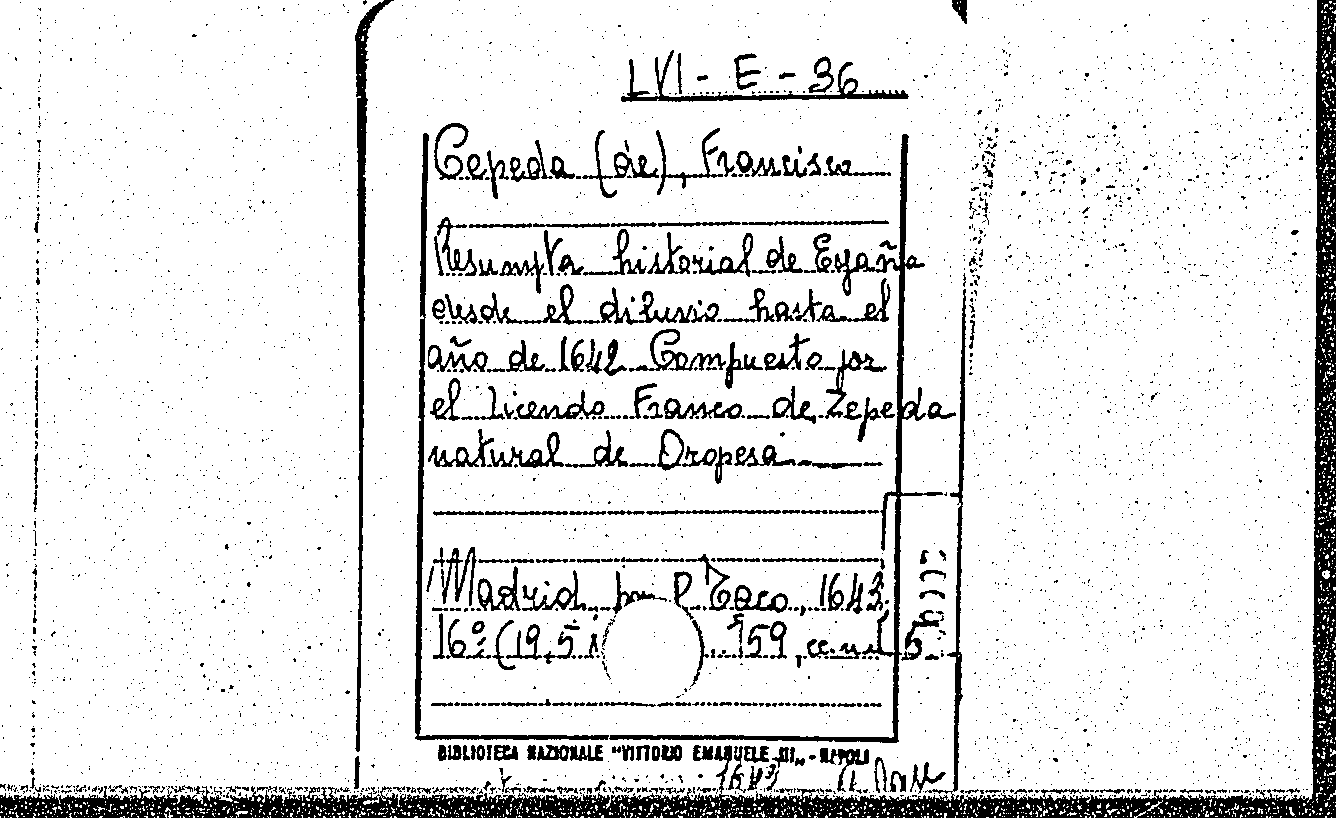 LVI - E - 36
Cepeda (de), Francisco
Resumpta historial de España
desde el diluvio hasta el
año de 1642 Compuesto por
el Licendo Franco de Zepeda
natural de Oropesa
Madrid, P. Taco, 1643
16º (19,5 159, cc. n. n. 5
BIBLIOTECA NAZIONALE "VITTORIO EMANUELE III" - NAPOLI
1643